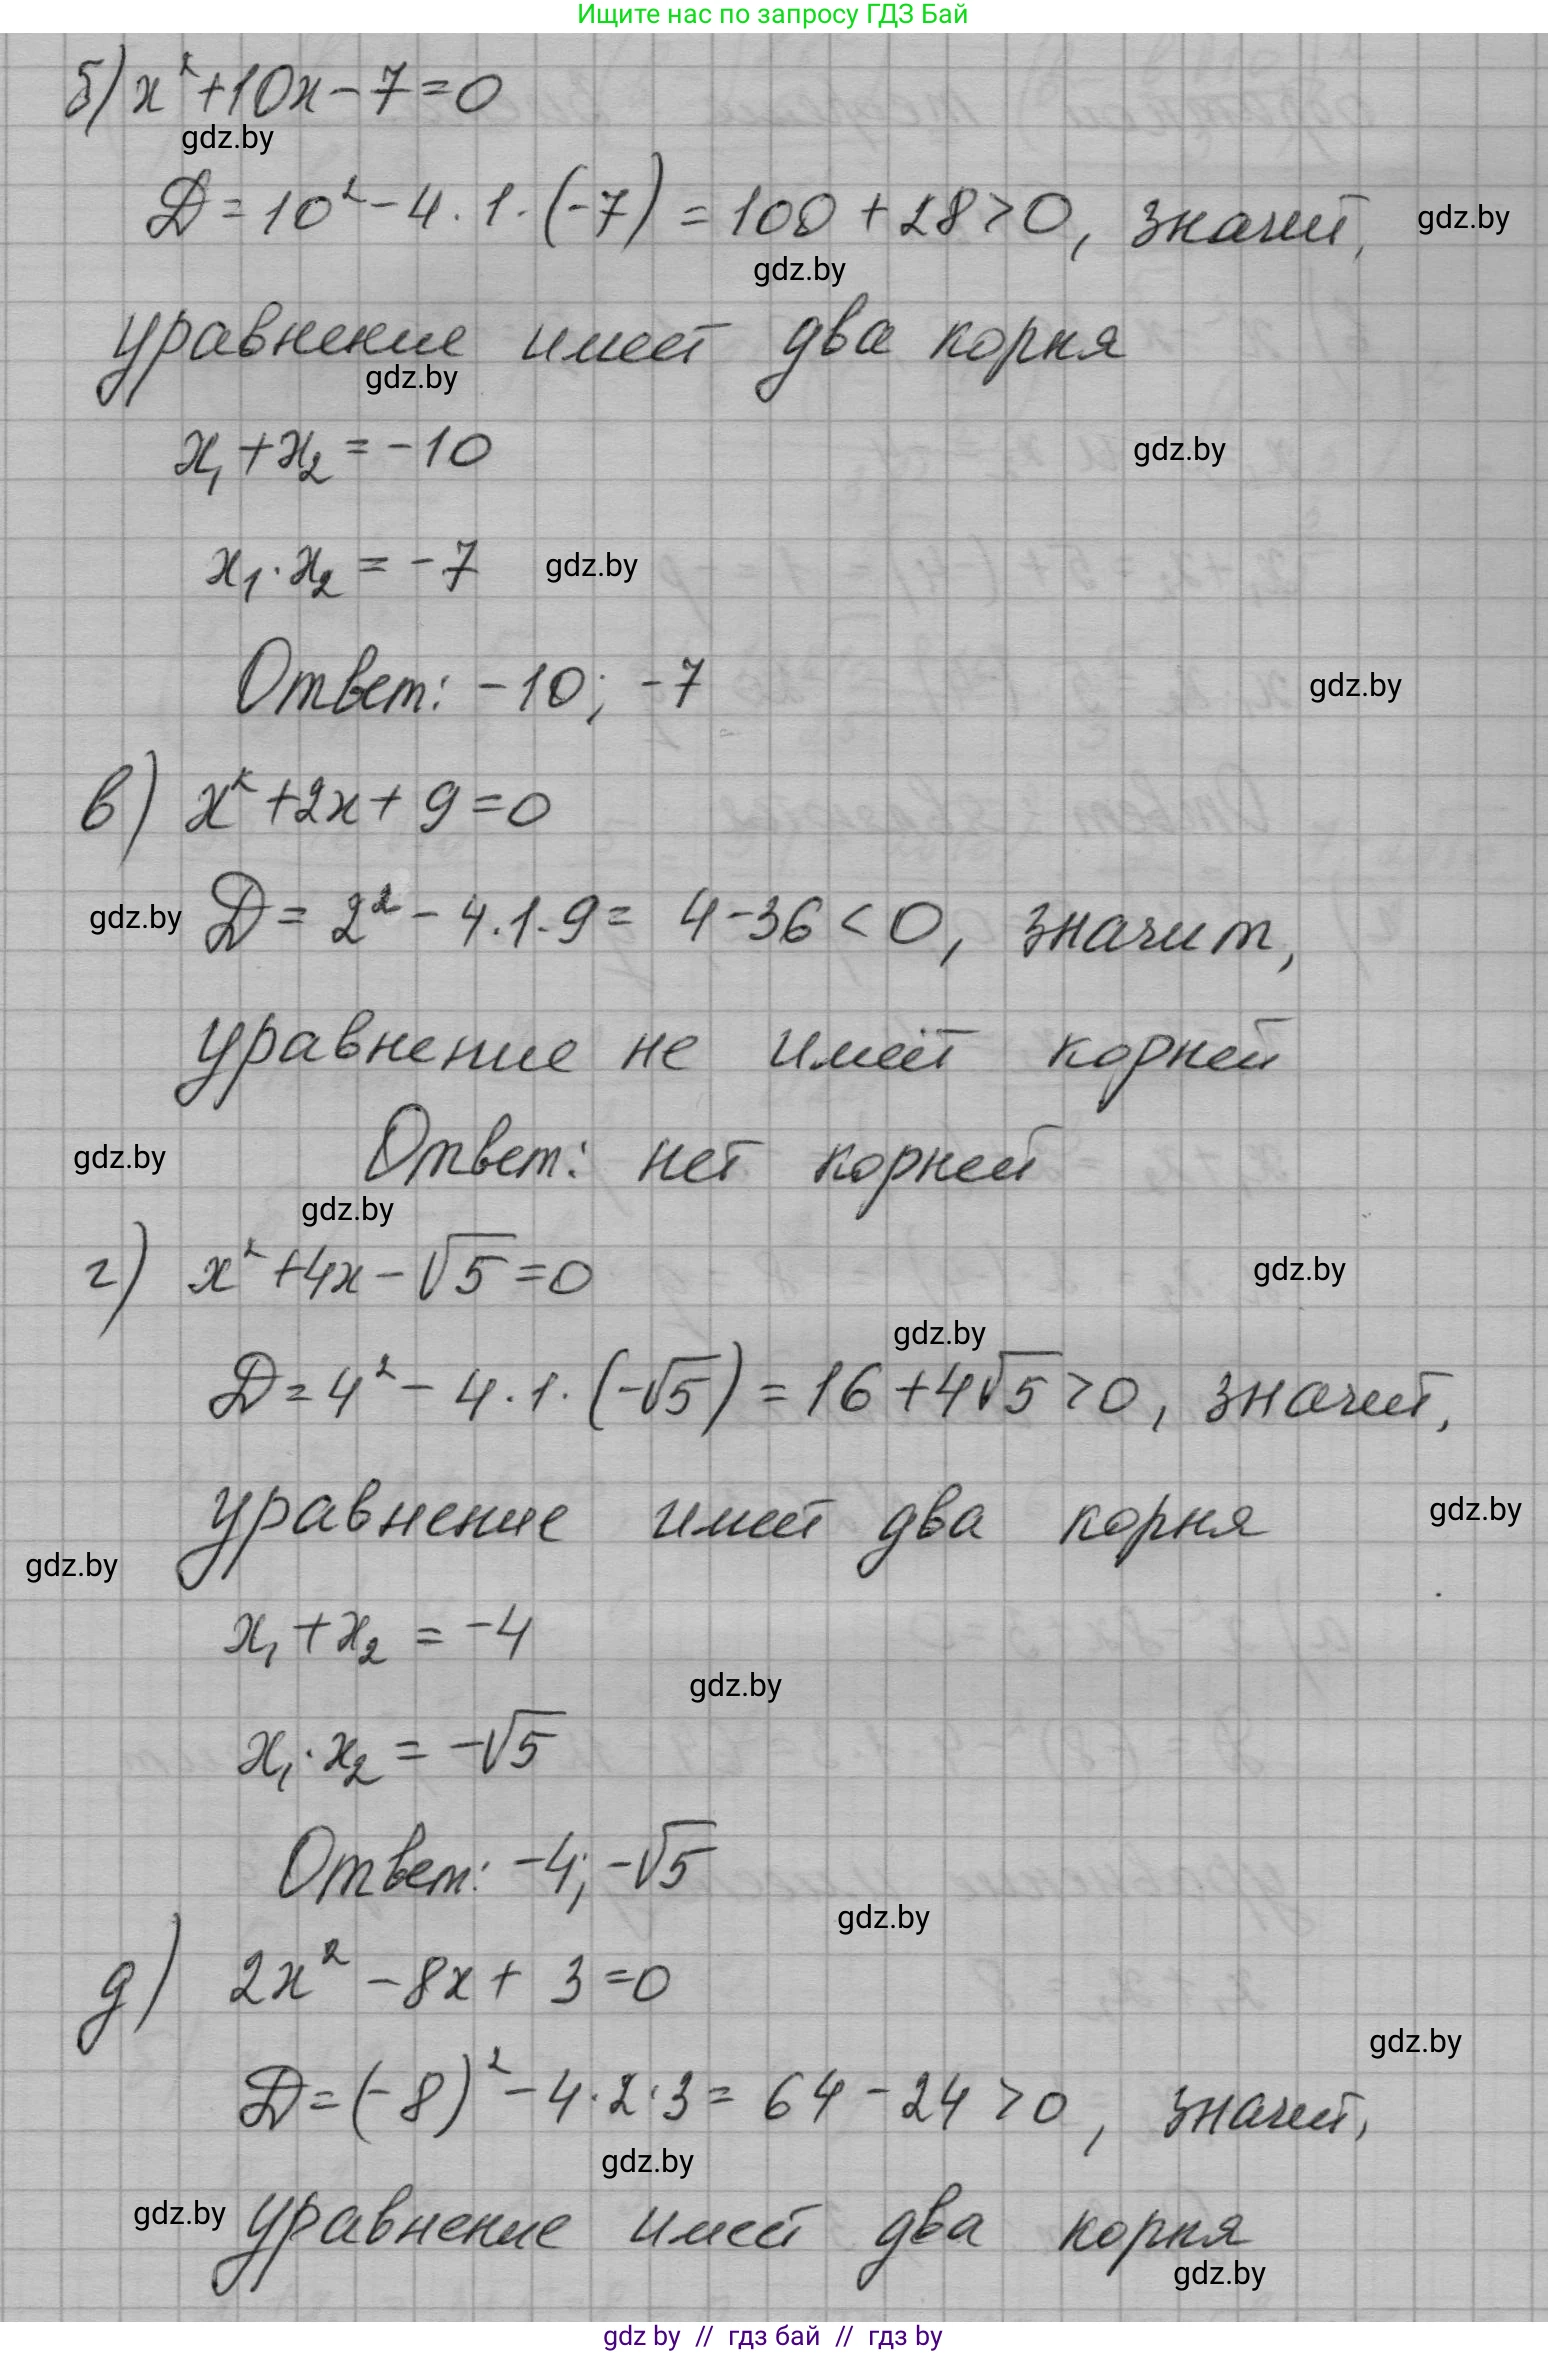 Ищите нас по запросу ГДЗ Бай
б) x² + 10x - 7 = 0
gdz.by
D = 10² - 4 · 1 · (-7) = 100 + 28 > 0, значит,
gdz.by
gdz.by
уравнение имеет два корня
gdz.by
x₁ + x₂ = -10
gdz.by
x₁ · x₂ = -7
gdz.by
Ответ: -10; -7
gdz.by
в) x² + 2x + 9 = 0
gdz.by
D = 2² - 4 · 1 · 9 = 4 - 36 < 0, значит,
уравнение не имеет корней
Ответ: нет корней
gdz.by
gdz.by
г) x² + 4x - √5 = 0
gdz.by
gdz.by
D = 4² - 4 · 1 · (-√5) = 16 + 4√5 > 0, значит,
уравнение имеет два корня
gdz.by
gdz.by
x₁ + x₂ = -4
gdz.by
x₁ · x₂ = -√5
Ответ: -4; -√5
gdz.by
д) 2x² - 8x + 3 = 0
gdz.by
D = (-8)² - 4 · 2 · 3 = 64 - 24 > 0, значит,
gdz.by
gdz.by
уравнение имеет два корня
gdz.by
gdz by // гдз бай // гдз by